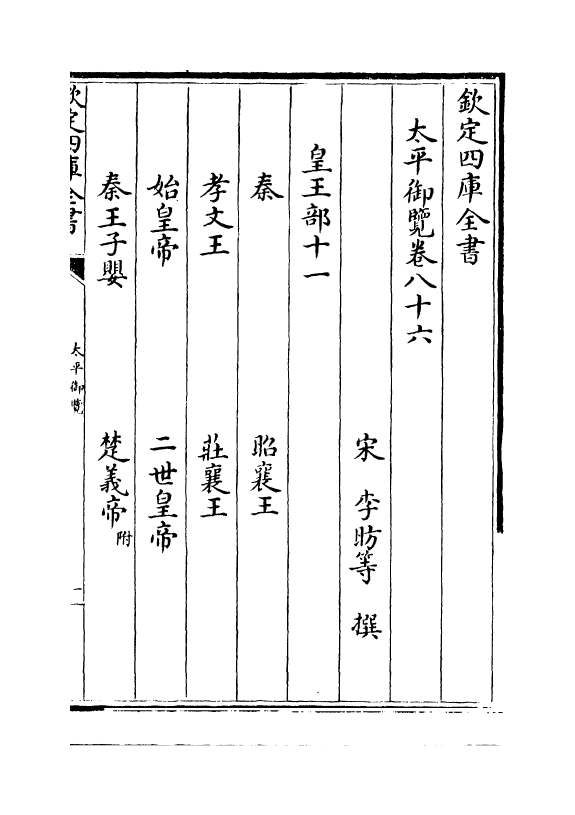 欽定四庫全書
太平御覽卷八十六
宋　李昉等　撰
皇王部十一
秦　昭襄王
孝文王　莊襄王
始皇帝　二世皇帝
秦王子嬰　楚義帝附
欽定四庫全書
太平御覽
一